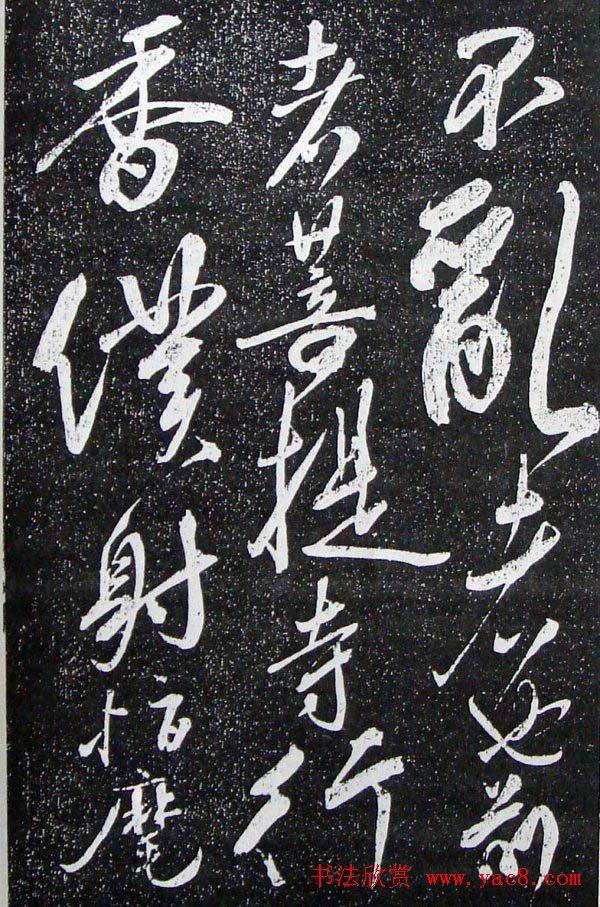 不亂者也前
者菩提寺行
香僕射指麾
书法欣赏 www.yac8.com